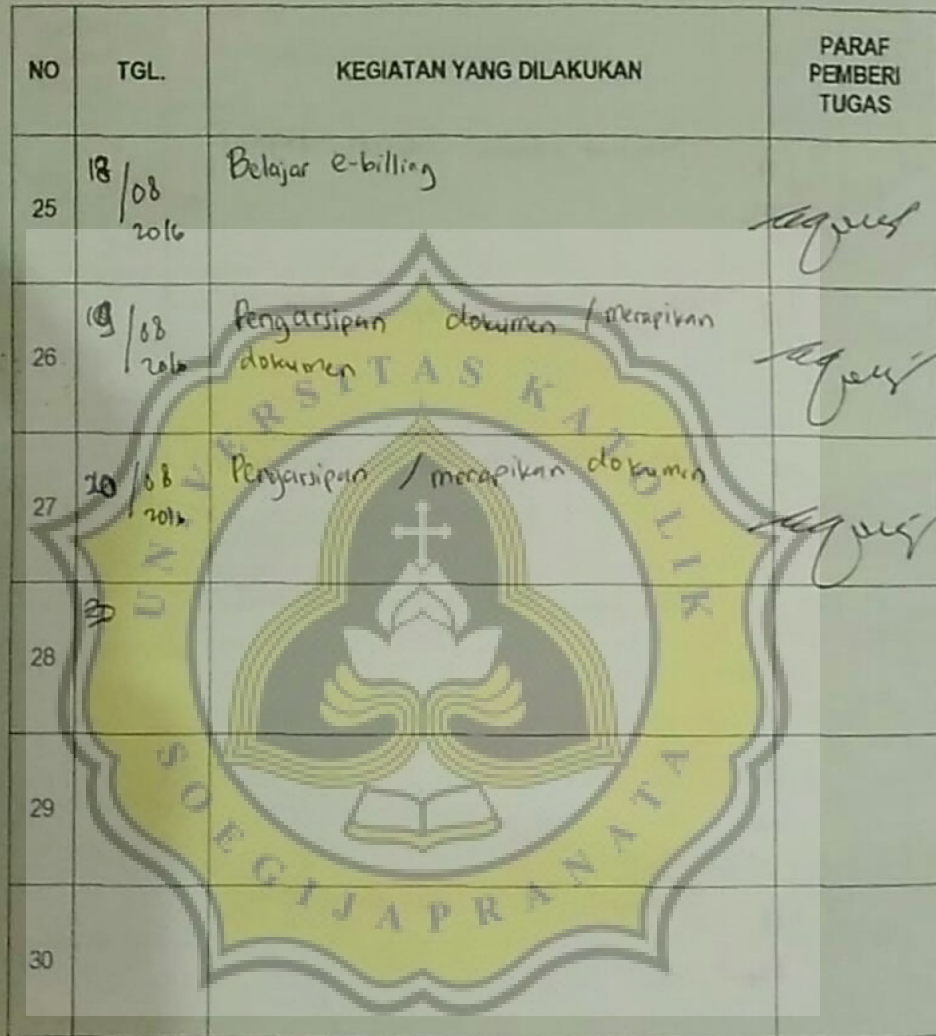 NO TGL. KEGIATAN YANG DILAKUKAN PARAF PEMBERI TUGAS
25 18/08 2016 Belajar e-billing
26 19/08 2016 Pengarsipan dokumen / merapikan
dokumen
27 20/08 2016 Pengarsipan / merapikan dokumen
28
29
30
UNIVERSITAS KATOLIK
SOEGIJAPRANATA